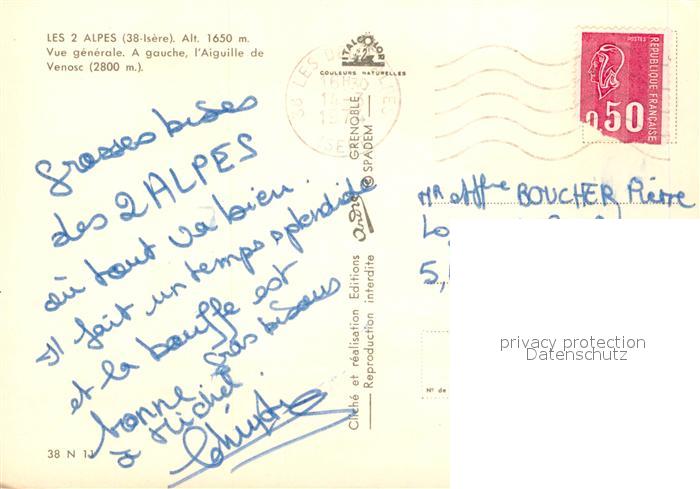 LES 2 ALPES (38-Isère). Alt. 1650 m.
Vue générale. A gauche, l'Aiguille de
Venosc (2800 m.).
Grosses bises
des 2 ALPES
où tout va bien.
Il fait un temps splendide
et la bouffe est
bonne. Gros bisous
à Michel.
38 N 11
ITALCOLOR
COULEURS NATURELLES
Cliché et réalisation Editions André GRENOBLE
Reproduction interdite © SPADEM
38 LES
15H30
POSTES
RÉPUBLIQUE FRANÇAISE
0,50
Mr et Mme BOUCHER Pierre
5,
N° de
privacy protection
Datenschutz